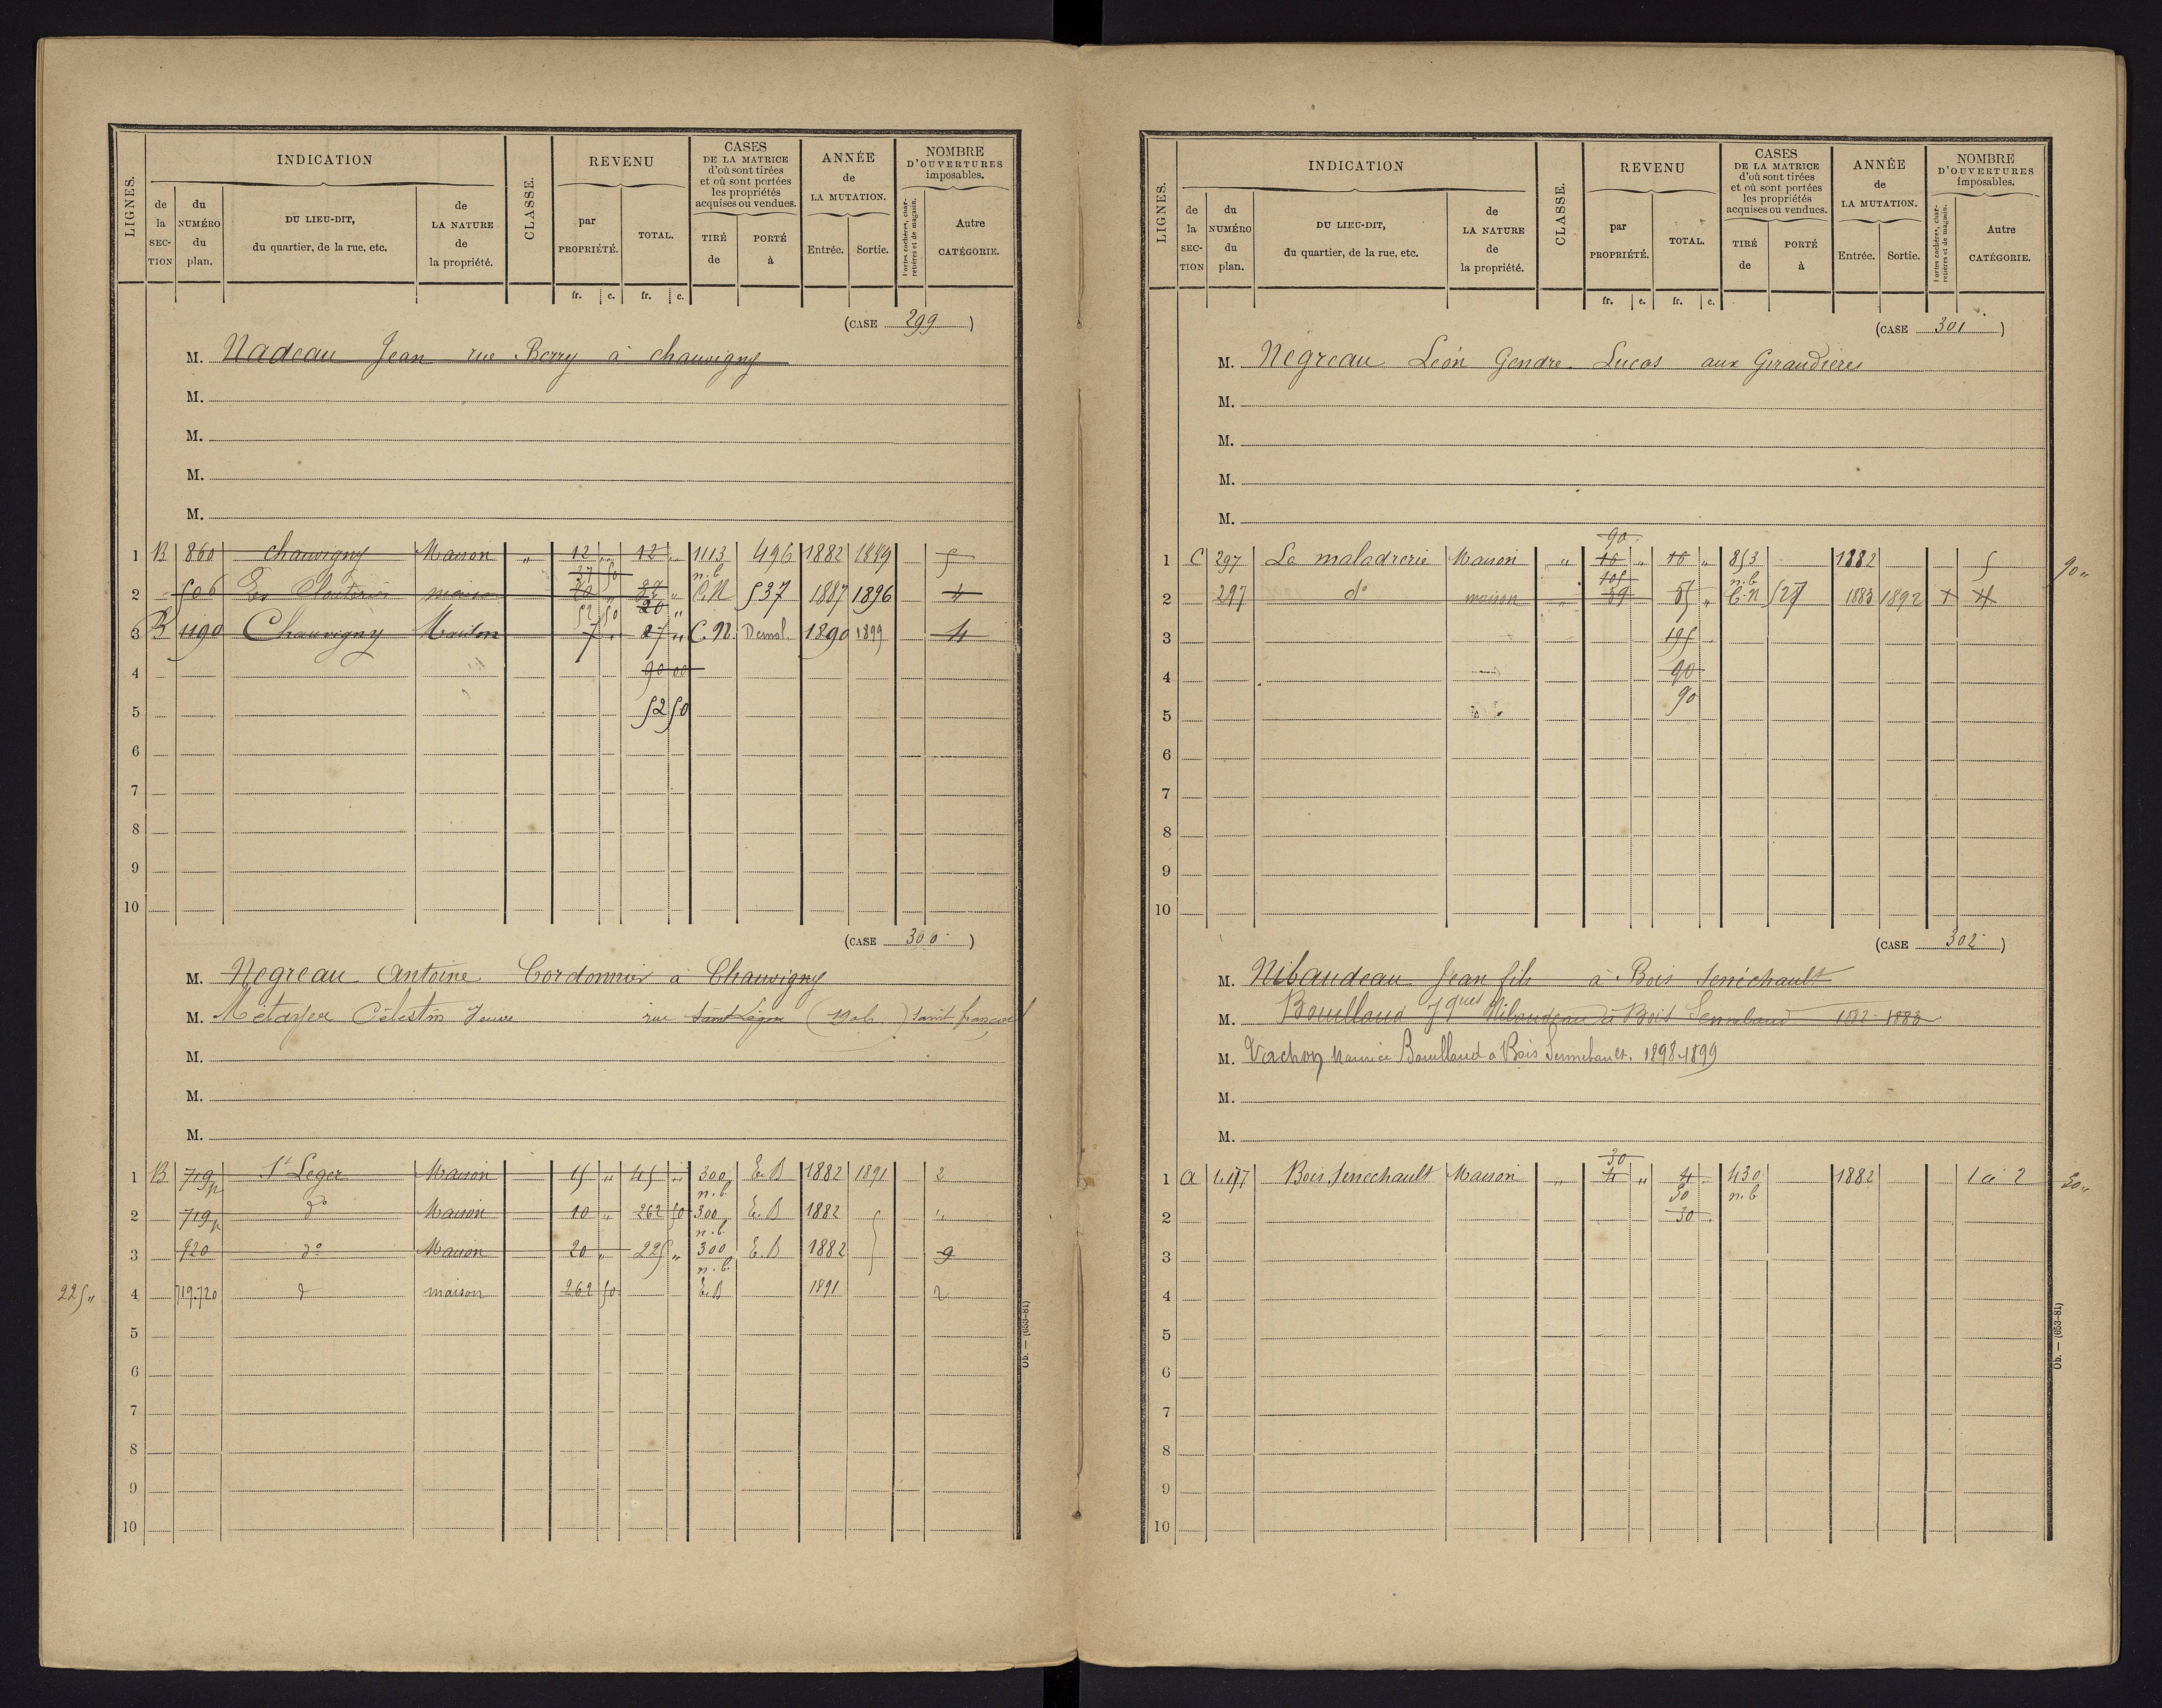 LIGNES.
INDICATION
CLASSE.
REVENU
CASES
DE LA MATRICE
d'où sont tirées
et où sont portées
les propriétés
acquises ou vendues.
ANNÉE
de
LA MUTATION.
NOMBRE
D'OUVERTURES
imposables.
de la SECTION
du NUMÉRO du plan.
DU LIEU-DIT,
du quartier, de la rue, etc.
de LA NATURE de la propriété.
par PROPRIÉTÉ.
TOTAL.
TIRÉ de
PORTÉ à
Entrée.
Sortie.
Portes cochères, charretières et de magasin.
Autre CATÉGORIE.
fr. c. fr. c.
(CASE 299)
M. Nadeau Jean rue Berry à chauvigny
M.
M.
M.
M.
1 B 860 chauvigny Maison " 12 " 12 " 1113 496 1882 1889 5
37 50 n.b.
2 506 maison C.N 537 1887 1896 4
52 50 20 "
3 B 1190 Chauvigny Maison 7 " 27 " C.N. Démol. 1890 1899 4
4 90 00
5 52 50
6
7
8
9
10
(CASE 300)
M. Negreau Antoine Cordonnier à Chauvigny
M. Métayer Célestin rue Saint Léger (1906) saint françois
M.
M.
M.
1 B 719p St Leger Maison 15 " 45 " 300 E.B 1882 1891 2
n.b.
2 719p do Maison 10 " 262 50 300 E.B 1882 "
n.b.
3 720 do Maison 20 " 225 " 300 E.B 1882 9
n.b.
225 " 4 719.720 d maison 262 50 E.B 1891 2
5
6
7
8
9
10
Ob. — (653-81)
LIGNES.
INDICATION
CLASSE.
REVENU
CASES
DE LA MATRICE
d'où sont tirées
et où sont portées
les propriétés
acquises ou vendues.
ANNÉE
de
LA MUTATION.
NOMBRE
D'OUVERTURES
imposables.
de la SECTION
du NUMÉRO du plan.
DU LIEU-DIT,
du quartier, de la rue, etc.
de LA NATURE de la propriété.
par PROPRIÉTÉ.
TOTAL.
TIRÉ de
PORTÉ à
Entrée.
Sortie.
Portes cochères, charretières et de magasin.
Autre CATÉGORIE.
fr. c. fr. c.
(CASE 301)
M. Négreau Léon Gendre Lucas aux Giraudières
M.
M.
M.
M.
90
1 C 297 La maladrerie Maison " 16 " 16 " 853 1882 5 90 "
105 n.b.
2 297 do maison " " C.N 527 1883 1892 1 4
3 195
4 90
5 90
6
7
8
9
10
(CASE 302)
M. Nibaudeau Jean fils à Bois Senéchault
M. Bouillaud Jques Nibaudeau à Bois 1882-1883
M. Vachon Maurice Bouillaud a Bois 1898-1899
M.
M.
30
1 A 447 Bois Senechault Maison " 4 " 4 " 430 1882 1 à 2 30 "
30 n.b
2 30
3
4
5
6
7
8
9
10
Ob. — (653-81)